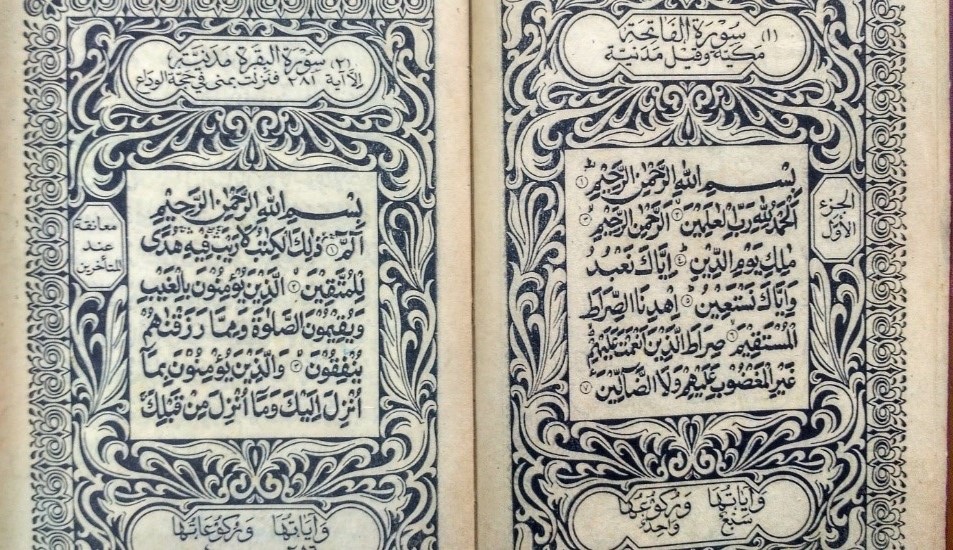 (١) سورة الفاتحة
مكية وقيل مدنية
الجزء
الاول
بسم الله الرحمن الرحيم ١
الحمد لله رب العلمين ٢ الرحمن الرحيم ٣
ملك يوم الدين ٤ اياك نعبد
واياك نستعين ٥ اهدنا الصراط
المستقيم ٦ صراط الذين انعمت عليهم
غير المغضوب عليهم ولا الضالين ٧
واياتها وركوعها
سبع واحد
(٢) سورة البقرة مدنية
الا آية ٢٨١ فنزلت بمنى في حجة الوداع
معانقة
عند
المتأخرين
بسم الله الرحمن الرحيم
الم ١ ذلك الكتب لا ريب فيه هدى
للمتقين ٢ الذين يؤمنون بالغيب
ويقيمون الصلوة ومما رزقنهم
ينفقون ٣ والذين يؤمنون بما
انزل اليك وما انزل من قبلك
واياتها وركوعاتها